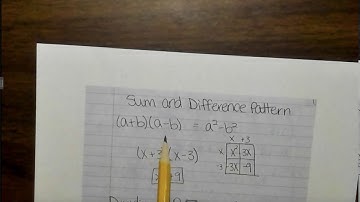 Sum and Difference Pattern
(a+b)(a-b) = a²-b²
x +3
(x+3)(x-3)
x x² 3x
-3 -3x -9